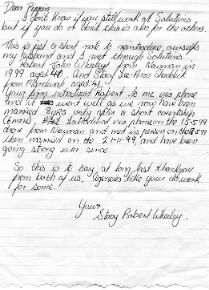 Dear Peppin,
I don't know if you still work at Solutions
but if you do or don't this is also for the others.
This is just a short note to reintroduce ourselves
my husband and I met through Solutions
Robert John Wheatley from Neyman in
1999 aged 40. And Stacy Le-Ann
from Mandurah aged 42.
Your firm introduced Robert to me via phone
and it went well as we now have been
married 3yrs only after a short courtship
via phone on the 15-5-99
from Neyman and met in person on the
then married on the 2-11-99 and have been
going strong ever since.
So this is to say, at long last thankyou
from both of us, Agencies like your do work
for some.
Yours
Stacy Robert Wheatley